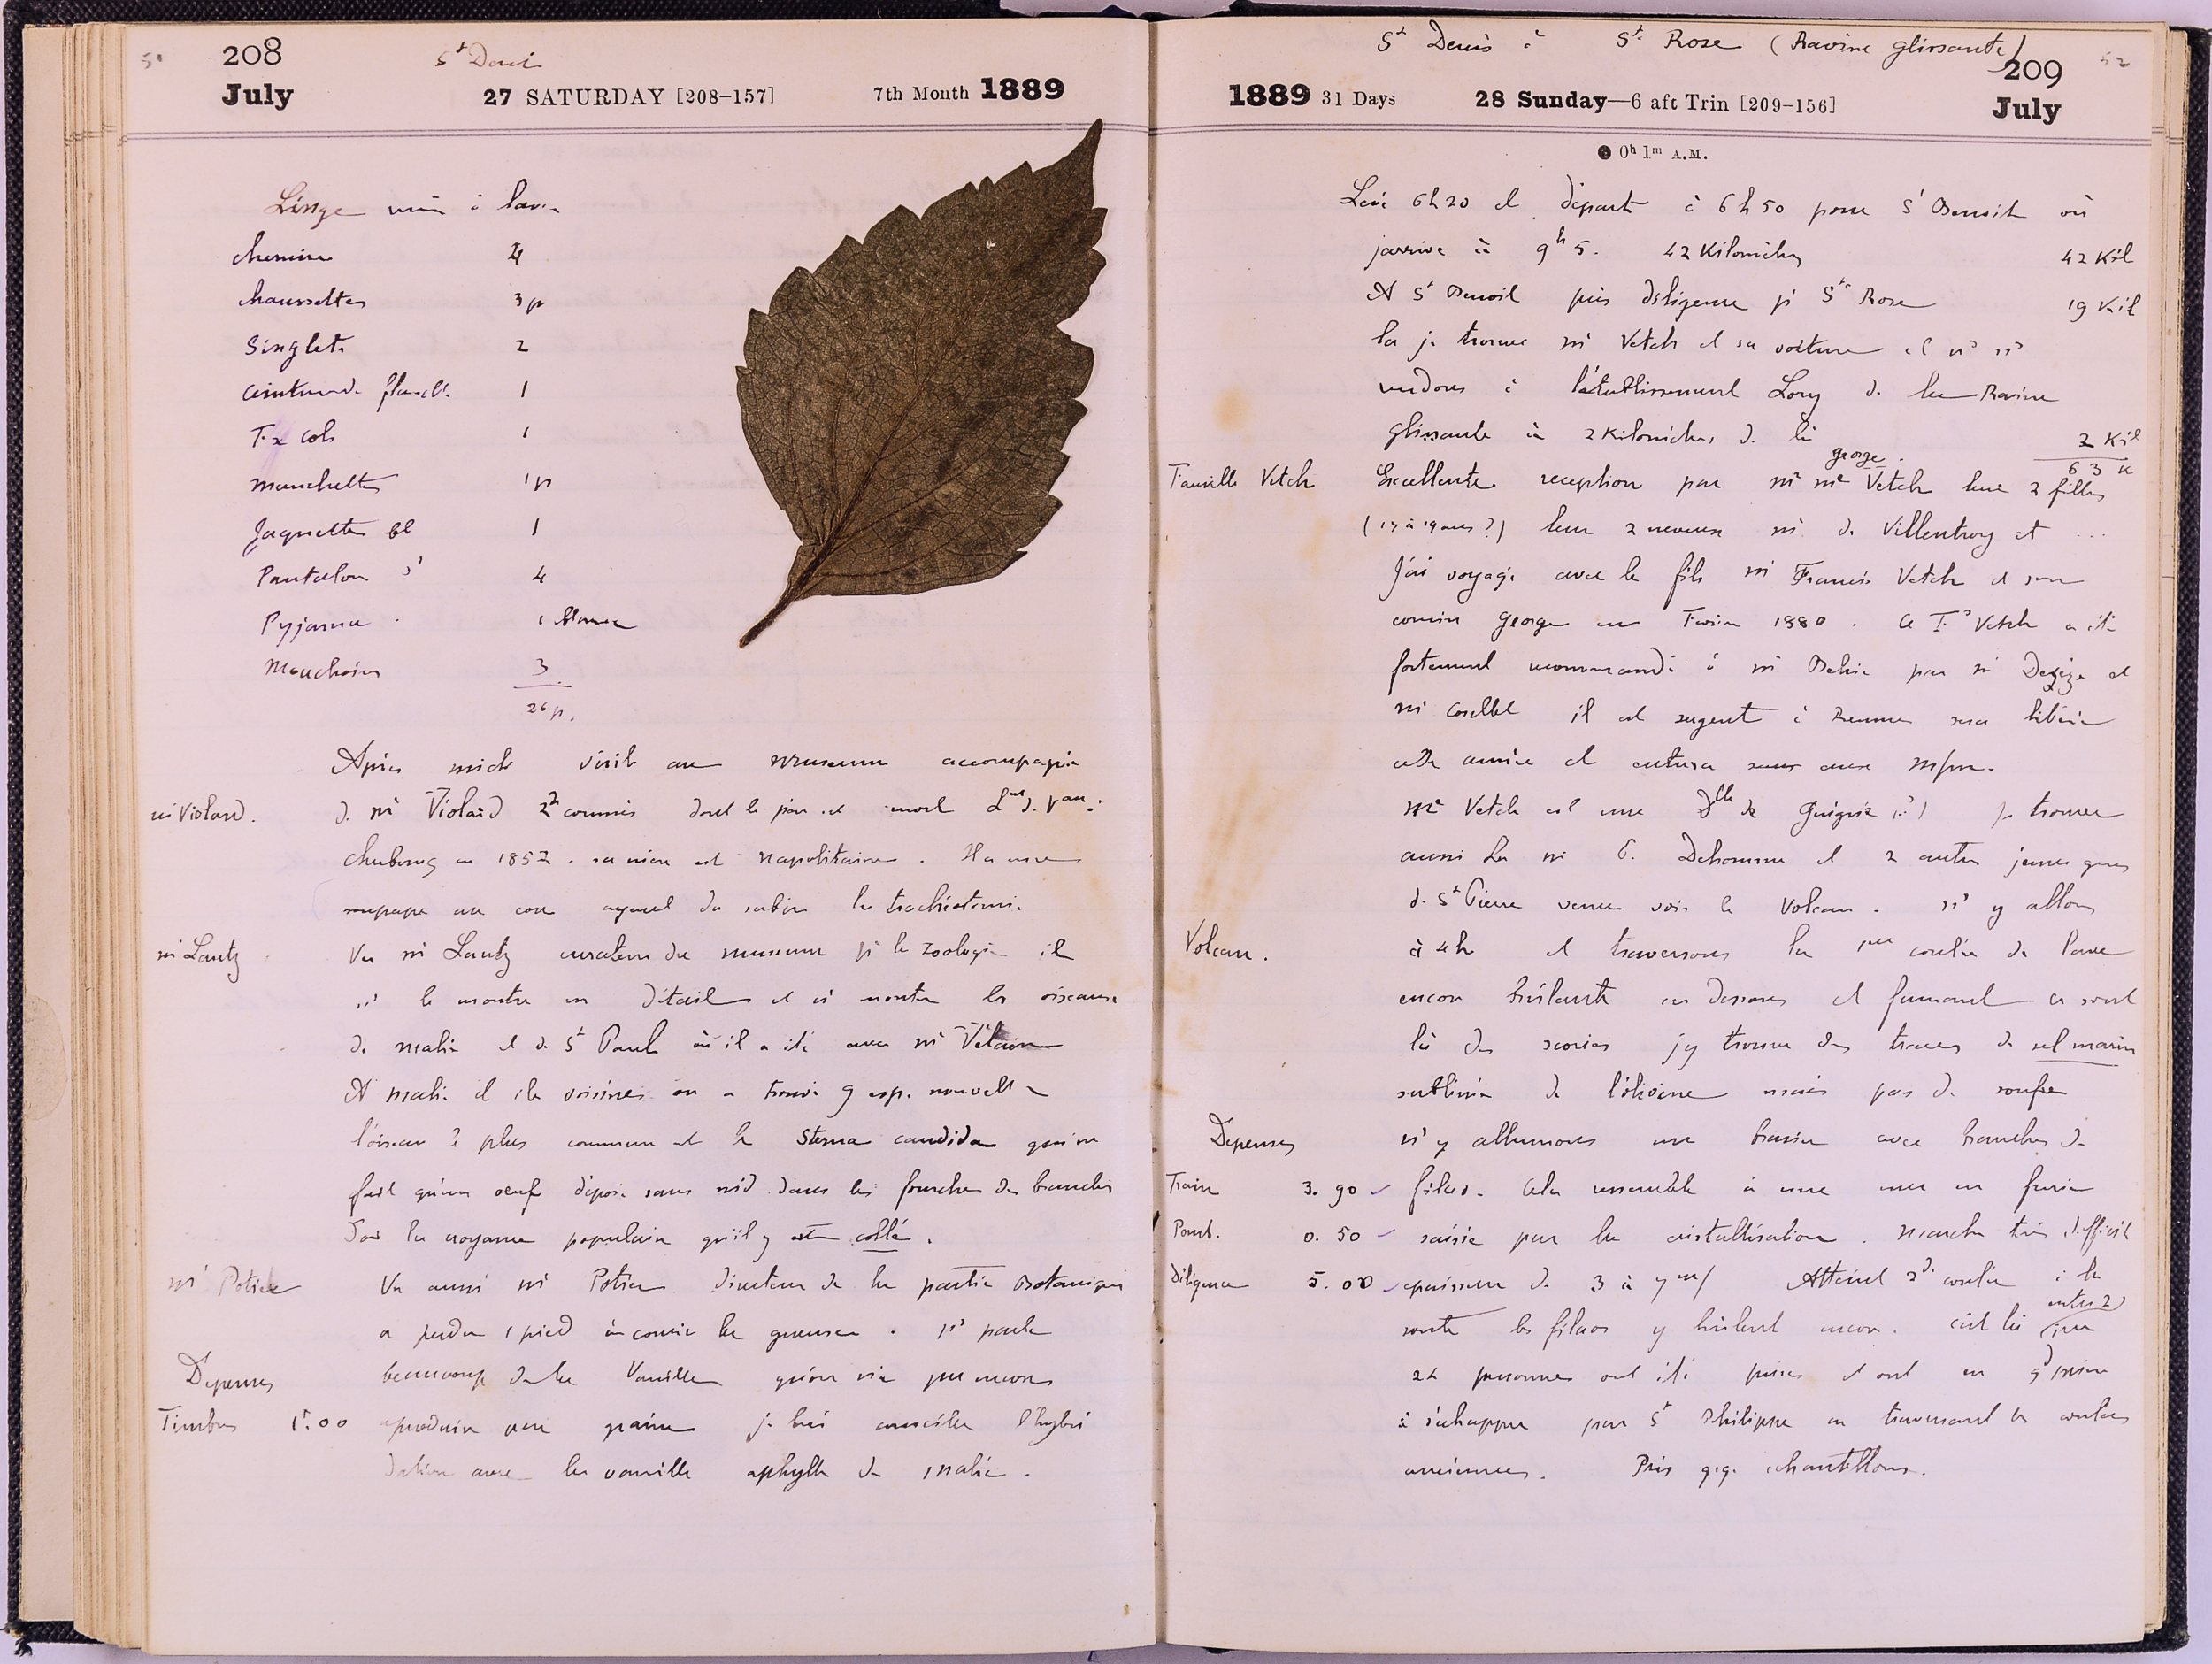 208
July
St Denis
27 SATURDAY [208-157]
7th Month 1889
Linge à laver
chemises 4
chaussettes 3 p
Singlets 2
1
cols 1
manchettes 1 p
Jaquette bl 1
Pantalon 4
Pyjama 1 blanc
Mouchoirs 3
26 p.
Après midi visite au museum accompagné
Mr Violard.
de Mr Violard 2d commis dont le père est mort
en 1857. sa mère est napolitaine. Il a une
soupape au cou ayant du subir la trachéotomie.
Mr Lantz
Vu Mr Lantz curateur du museum pr la zoologie il
ns le montre en détail et ns montre les oiseaux
de Mahé et de St Paul où il a été avec Mr Vélain
A Mahé et iles voisines on a trouvé 9 esp. nouvelle
l'oiseau le plus commun est le Sterna candida qui ne
fait qu'un oeuf déposé sans nid dans les fourches des branches
la croyance populaire qu'il y est collé.
Mr Potier
Vu aussi Mr Potier directeur de la partie Botanique
a perdu 1 pied ns parle
Depenses
beaucoup de la Vanille qu'on n'a pu encore
Timbres 1f.00
reproduire par graine je lui conseille l'hybri
dation avec la vanille aphylle de Mahé.
St Denis à Ste Rose (Ravine glissante)
209
1889 31 Days
28 Sunday—6 aft Trin [209-156]
July
● 0h 1m A.M.
Levé 6h20 et départ à 6h50 pour St Benoit où
j'arrive à 9h5. 42 Kilomètres 42 Kil
A St Benoit pris diligence pr Ste Rose 19 Kil
là je trouve Mr Vetch et sa voiture et ns ns
rendons à l'établissement Lory de la Ravine
glissante à 2 Kilomètres de là 2 Kil
george. 63 K
Famille Vetch
Excellente reception par Mr Me Vetch leur 2 filles
(17 à 19 ans?) leur 2 neveux Mr de Villentroy et ...
J'ai voyagé avec le fils Mr Francis Vetch et son
cousin George en 1880. Ce Vetch a été
fortement recommandé à Mr par Mr et
Mr il est sergent à sera libéré
cette année et entrera
Me Vetch est une Dlle de Guigné (?) je trouve
aussi là Mr Dehomme et 2 autres jeunes gens
de St Pierre venus voir le Volcan. ns y allons
Volcan.
à 4h et traversons la 1ere coulée de lave
encore brûlante en dessous et fumant ce sont
là des scories j'y trouve des traces de sel marin
sublimé de l'olivine mais pas de soufre
Depenses
ns y allumons un brasier avec branches de
Train 3.90
filaos. Cela ressemble à une mer en furie
Pourb. 0.50
saisie par la cristallisation. marche très difficile
Diligence 5.00
épaisseur de 3 à 7 m/ Atteint 2de coulée à la
route les filaos y brûlent encore. c'est là entre 2
24 personnes ont été prises et ont eu gd peine
à s'échapper par St Philippe en traversant les coulées
anciennes. Pris qq. échantillons.